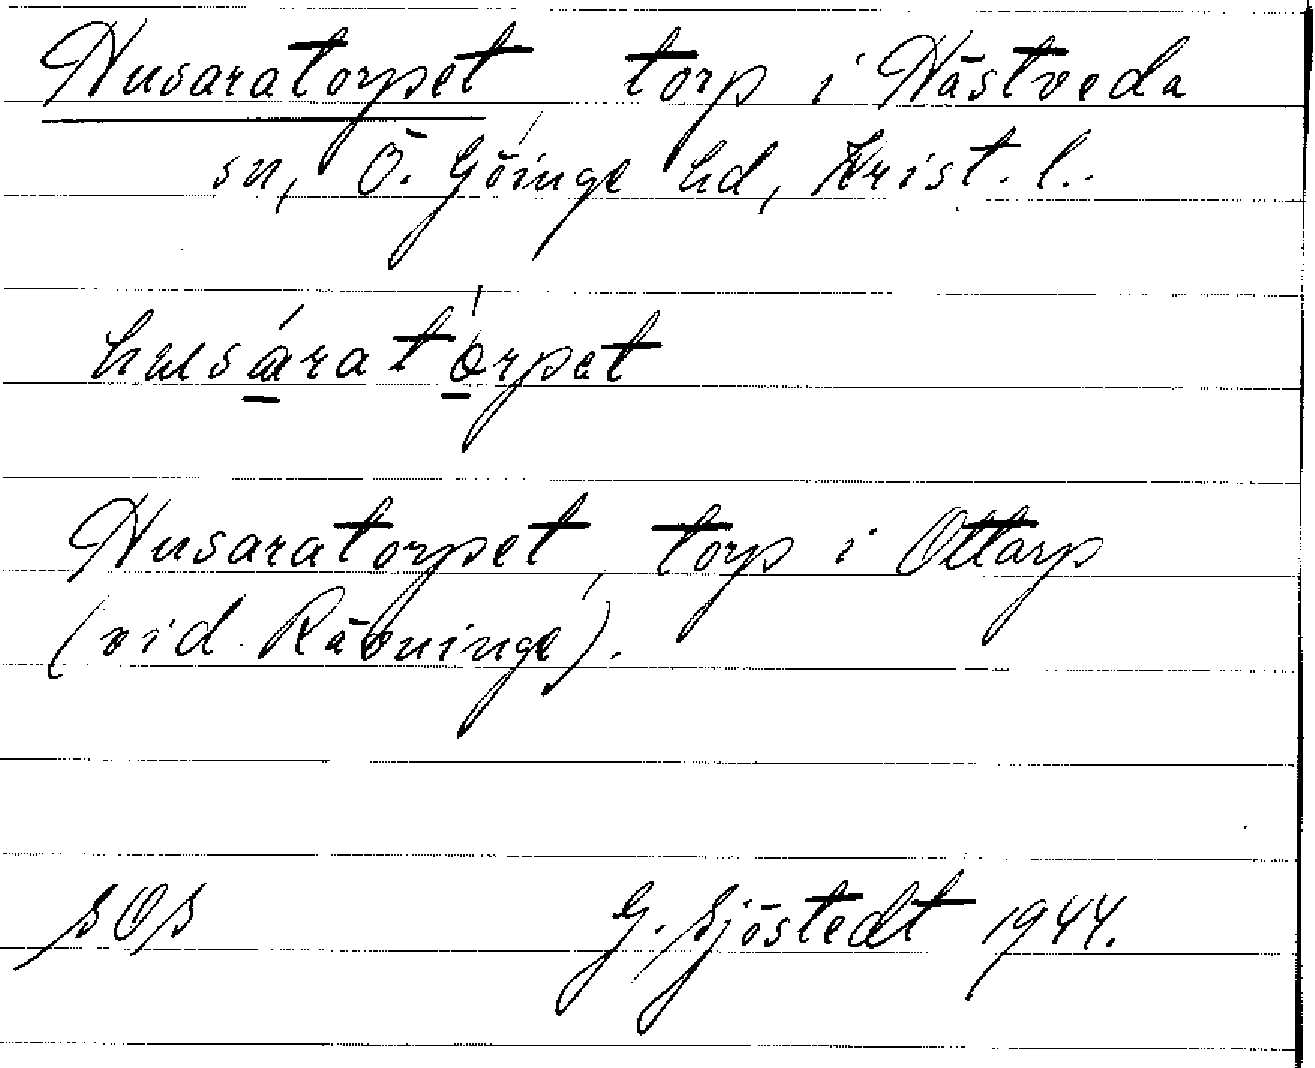 Husaratorpet torp i Hästveda
sn, Ö. Göinge hd, Krist. l..
husáratórpet
Husaratorpet, torp i Ottarp
(vid Rävninge).
SOS G. Sjöstedt 1944.